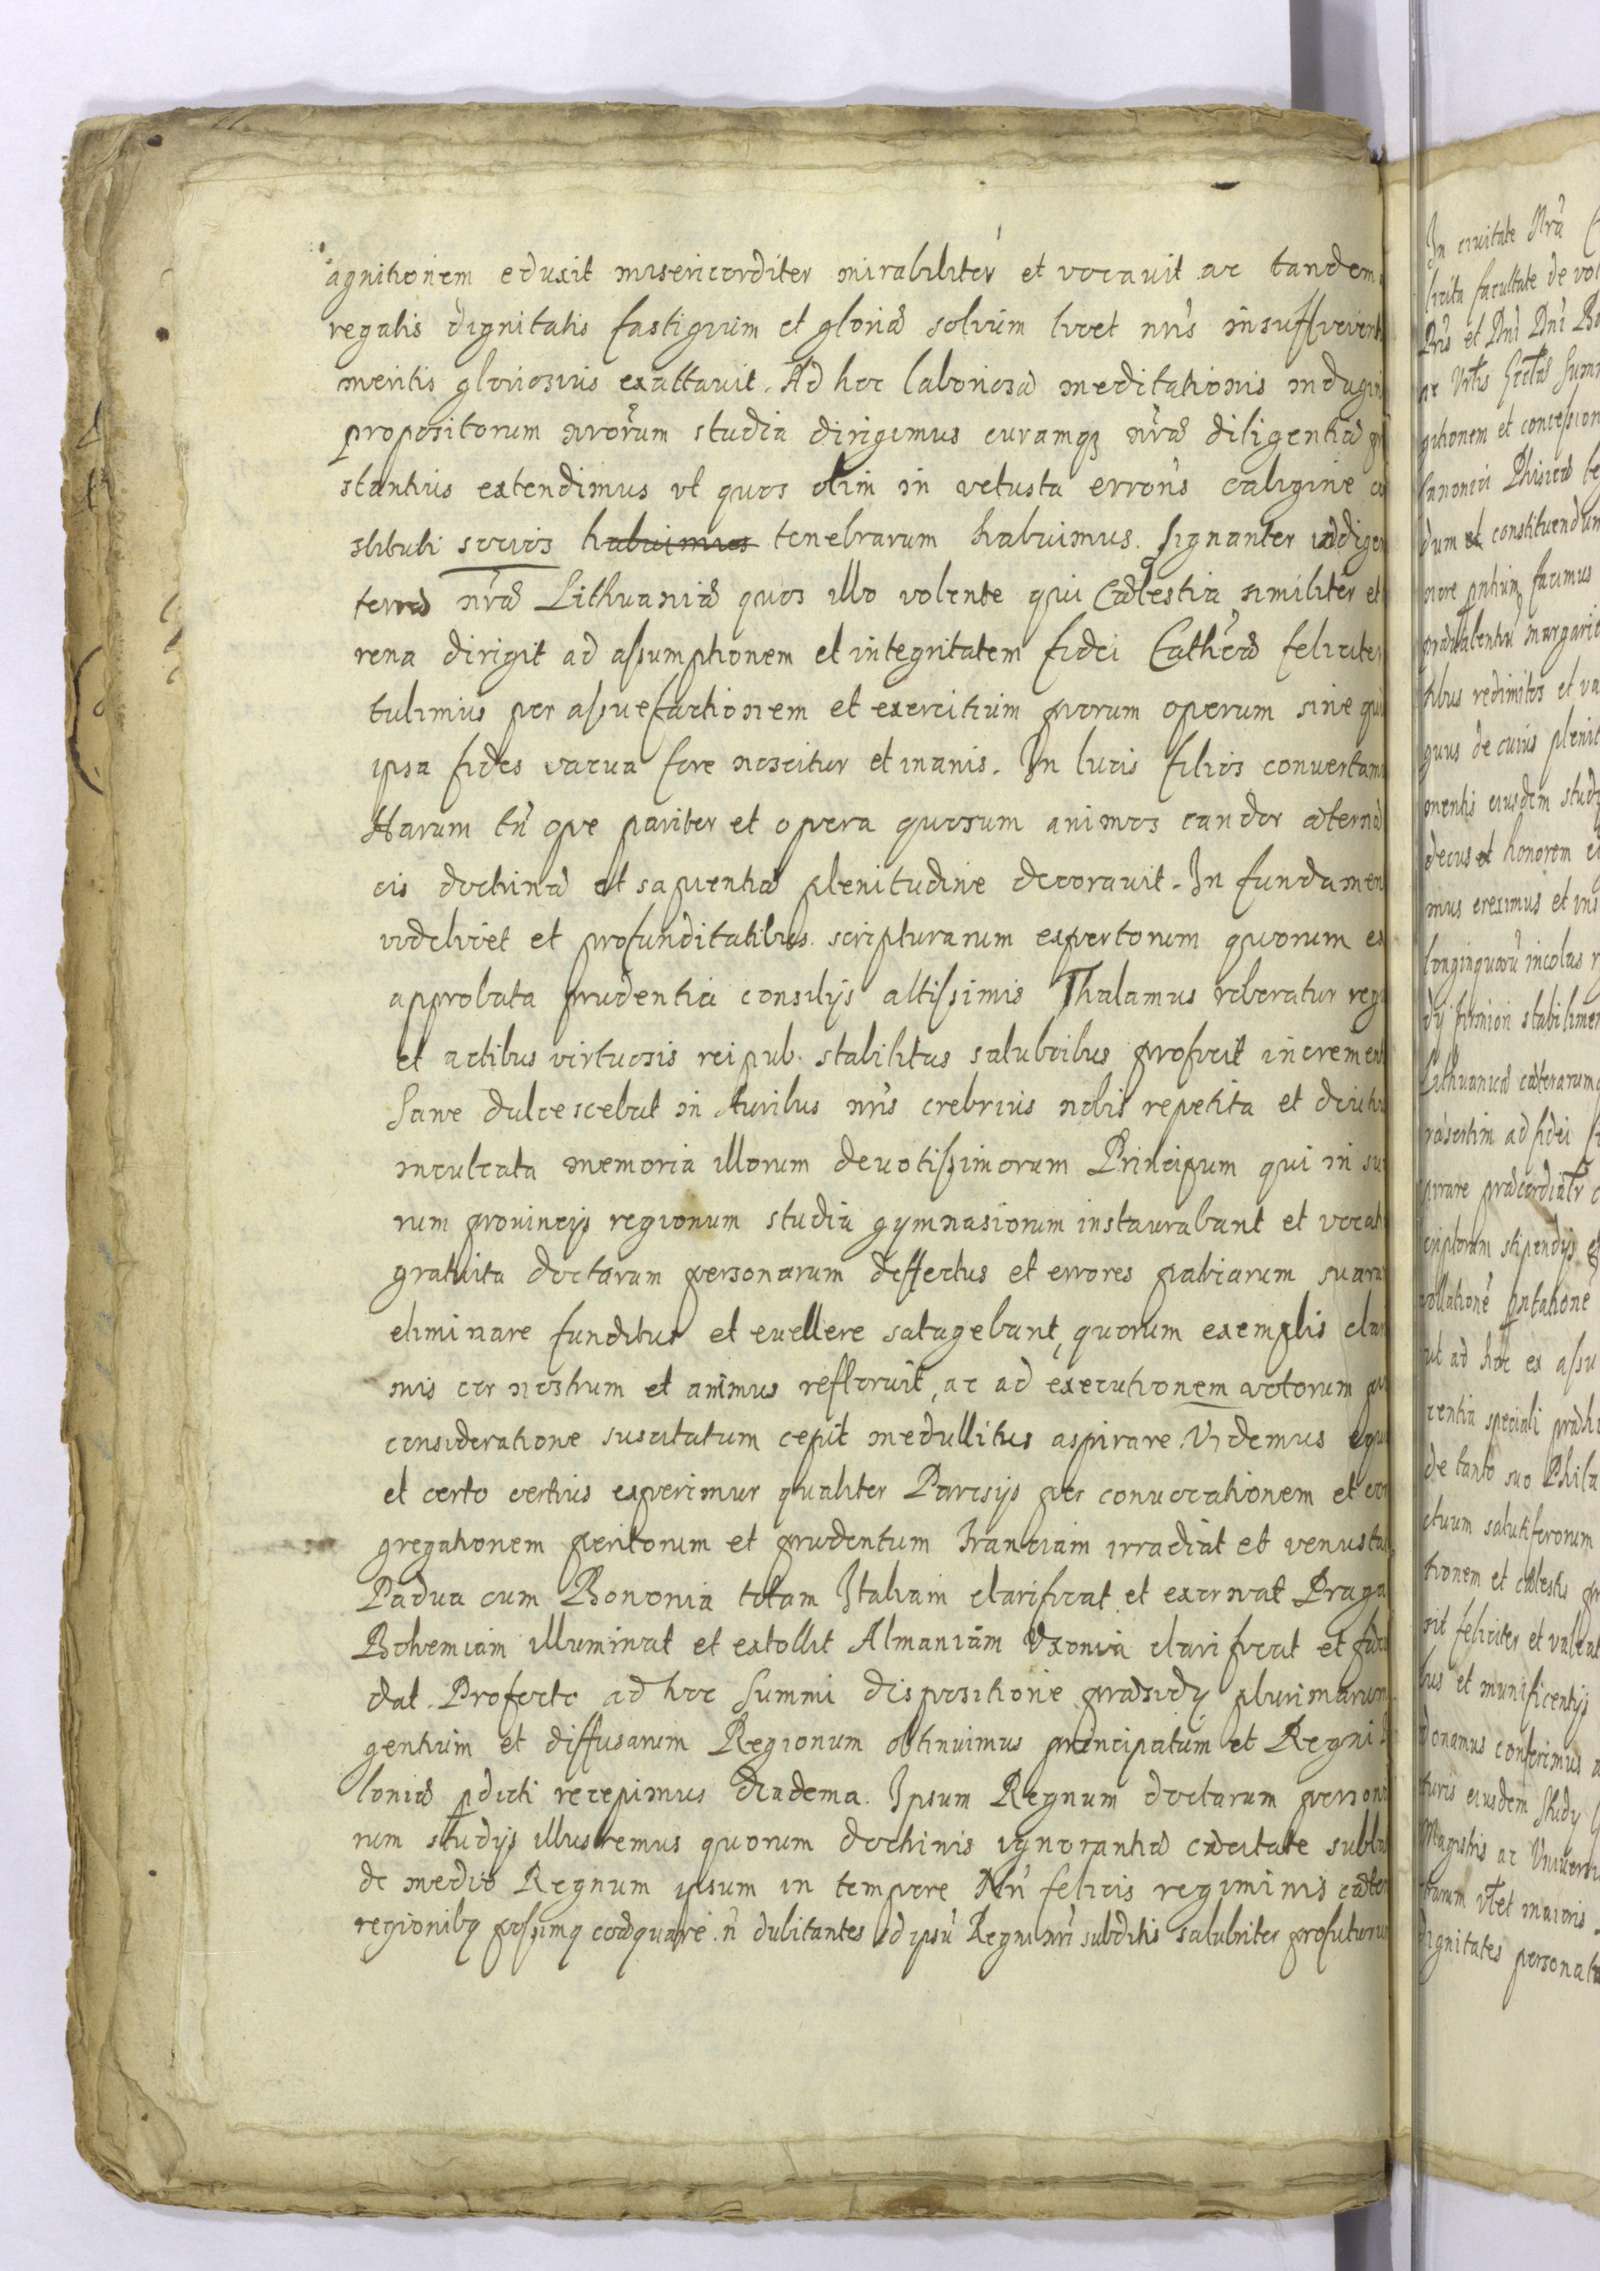 agnitionem eduxit misericorditer mirabiliter et vocauit ac tandem
regalis dignitatis fastigium et gloriæ solium licet nris insufficient
meritis gloriosius exaltauit. Ad hoc laboriosæ meditationis indagin
propositorum nrorum studia dirigimus curamq3 nræ diligentiæ
stantius extendimus vt quos olim in vetusta erroris caligine co
stituti socios habuimus tenebrarum habuimus. Signanter indigen
terræ nræ Lithuaniæ quos illo volente qui Cælestia similiter et
rena dirigit ad assumptionem et integritatem fidei Cathcæ feliciter
tulimus per assuefactionem et exercitium piorum operum sine qui
ipsa fides vacua fore noscitur et inanis. In lucis filios conuertam
Harum tn ope pariter et opera quorum animos candor æternæ
cis doctrinæ et sapientiæ plenitudine decorauit. In fundamen
videlicet et profunditatibus scripturarum expertorum quorum ex
approbata prudentia consilijs altissimis Thalamus roboratur reg
et actibus virtuosis reipub. stabilitus salubribus proficit increment
Sane dulcescebat in Auribus nris crebrius nobis repetita et diuti
inculcata memoria illorum deuotissimorum Principum qui in su
rum prouincijs regionum studia gymnasiorum instaurabant et vocat
gratuita doctarum personarum deffectus et errores patriarum suaru
eliminare funditus et euellere satagebant, quorum exemplis clar
mis cor nostrum et animus refloruit, ac ad executionem votorum
consideratione suscitatum cepit medullitus aspirare. Videmus equi
et certo certius experimur qualiter Parisijs per conuocationem et con
gregationem peritorum et prudentum Franciam irradiat et venustat
Padua cum Bononia totam Italiam clarificat et exornat Praga
Bohemiam illuminat et extollit Almaniam Vxonia clarificat et fæcu
dat. Profecto ad hoc Summi dispositione præsidij plurimarum
gentium et diffusarum Regionum obtinuimus principatum et Regni P
loniæ pdicti recepimus diadema. Ipsum Regnum doctarum persona
rum studijs illustremus quorum doctrinis ignorantiæ cæcitate subla
de medio Regnum ipsum in tempore Nri felicis regiminis cæter
regionibq possimq coæquare. n dubitantes id ipsu Regni nri subditis salubriter profuturu
In ciuitate Nra
licita facultate de vol
Pris et Dni Dni Bo
ac Vrbis Sctæ Summ
gitionem et concession
Canonici Phisicæ le
dum et constituendum
nore pntium facimus
præualentiu margarit
tibus redimitos et va
guus de cuius plenit
mentis eiusdem studij
decus et honorem
mus ereximus et ins
longinquaru incolas
dij firmiori stabilimen
Lithuanicæ cæterarum
ræsertim ad fidei
pirare præcordialr
criptorum stipendijs et
collatione pntatione
ut ad hoc ex assu
rentia speciali prædi
de tanto suo Phila
ctuum salutiferorum
tionem et cælestis
sit feliciter et valeat
bus et munificentijs
donamus conferimus a
turis eiusdem Studij
Magistris ac Vniuersi
trarum vtet maioris
dignitates personatu